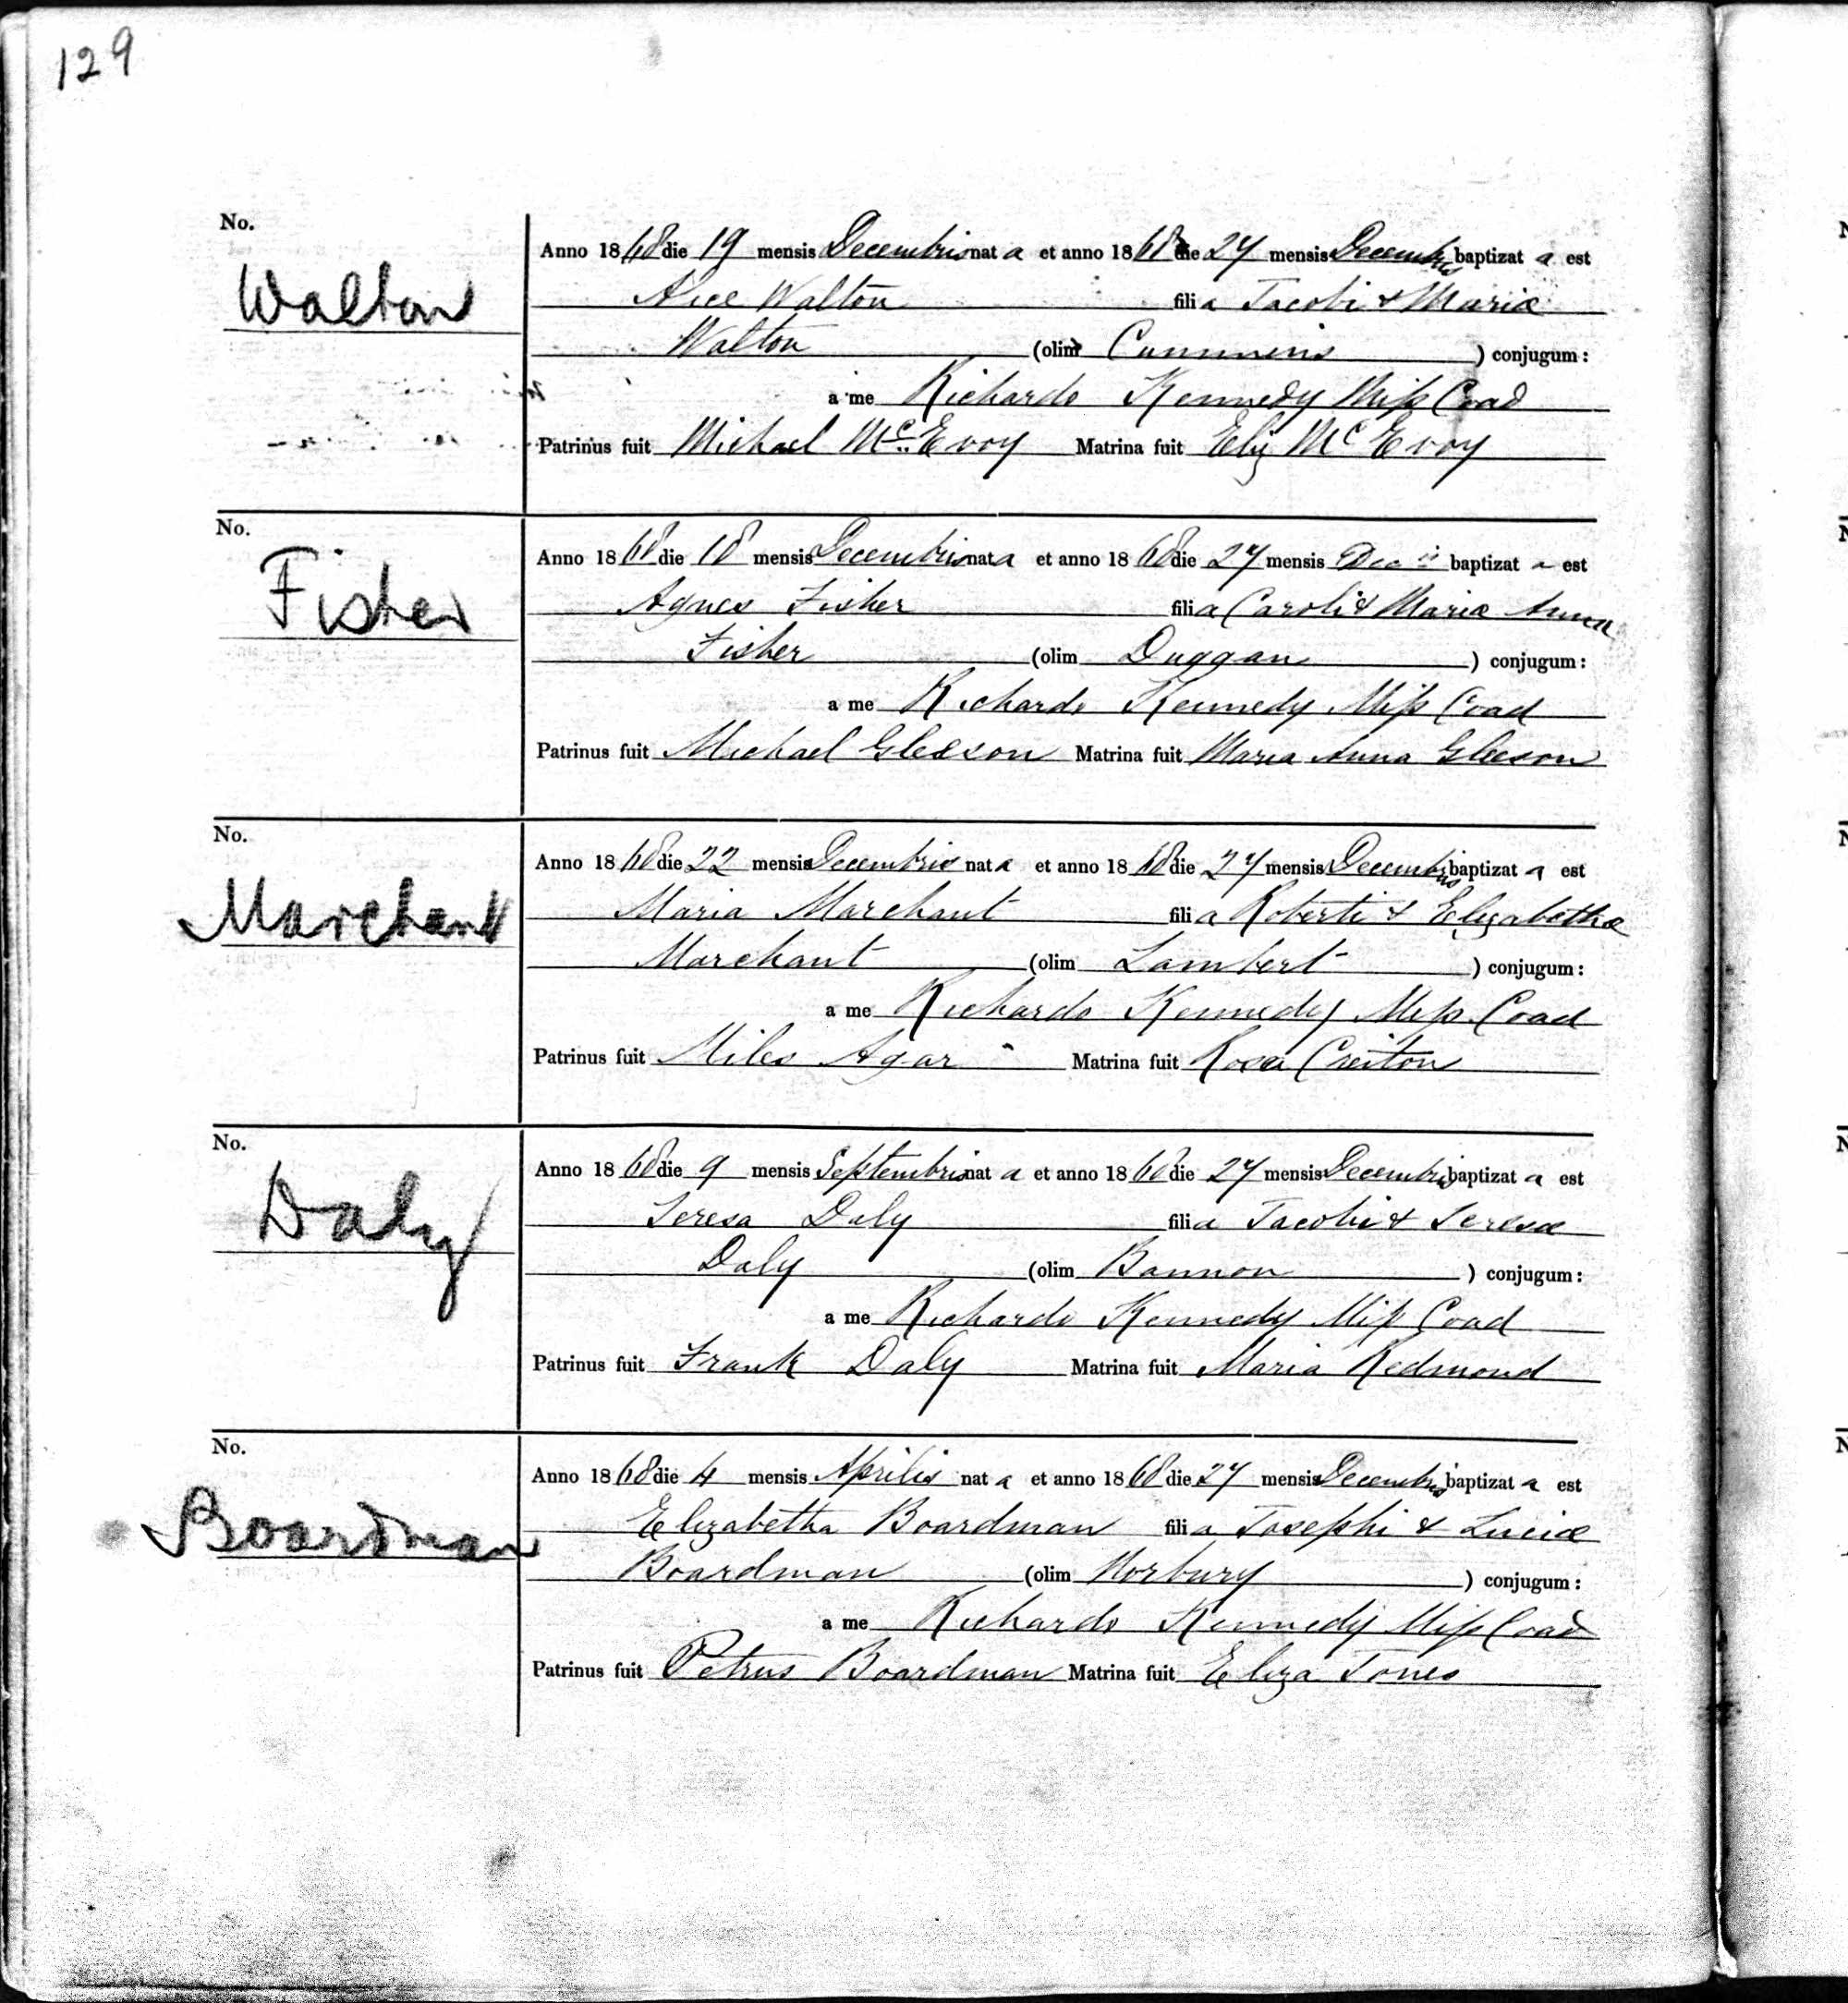 129
No.
Walton
Anno 1868 die 19 mensis Decembris nat a et anno 1868 die 27 mensis Decembris baptizat a est
Alice Walton filia Jacobi & Mariæ
Walton (olim Cummins) conjugum:
a me Richardo Kennedy Miss Coad
Patrinus fuit Michael McEvoy Matrina fuit Eliz McEvoy
No.
Fisher
Anno 1868 die 18 mensis Decembris nat a et anno 1868 die 27 mensis Dec baptizat a est
Agnes Fisher filia Caroli & Mariæ Annæ
Fisher (olim Duggan) conjugum:
a me Richardo Kennedy Miss Coad
Patrinus fuit Michael Gleeson Matrina fuit Maria Anna Gleeson
No.
Marchant
Anno 1868 die 22 mensis Decembris nat a et anno 1868 die 27 mensis Decembris baptizat a est
Maria Marchant filia Roberti & Elizabethæ
Marchant (olim Lambert) conjugum:
a me Richardo Kennedy Miss. Coad
Patrinus fuit Miles Agar Matrina fuit Rosa Creiton
No.
Daly
Anno 1868 die 9 mensis Septembris nat a et anno 1868 die 27 mensis Decembris baptizat a est
Teresa Daly filia Jacobi & Teresæ
Daly (olim Bannon) conjugum:
a me Richardo Kennedy Miss Coad
Patrinus fuit Frank Daly Matrina fuit Maria Redmond
No.
Boardman
Anno 1868 die 4 mensis Aprilis nat a et anno 1868 die 27 mensis Decembris baptizat a est
Elizabetha Boardman filia Josephi & Luciæ
Boardman (olim Norbury) conjugum:
a me Richardo Kennedy Miss Coad
Patrinus fuit Petrus Boardman Matrina fuit Eliza Jones